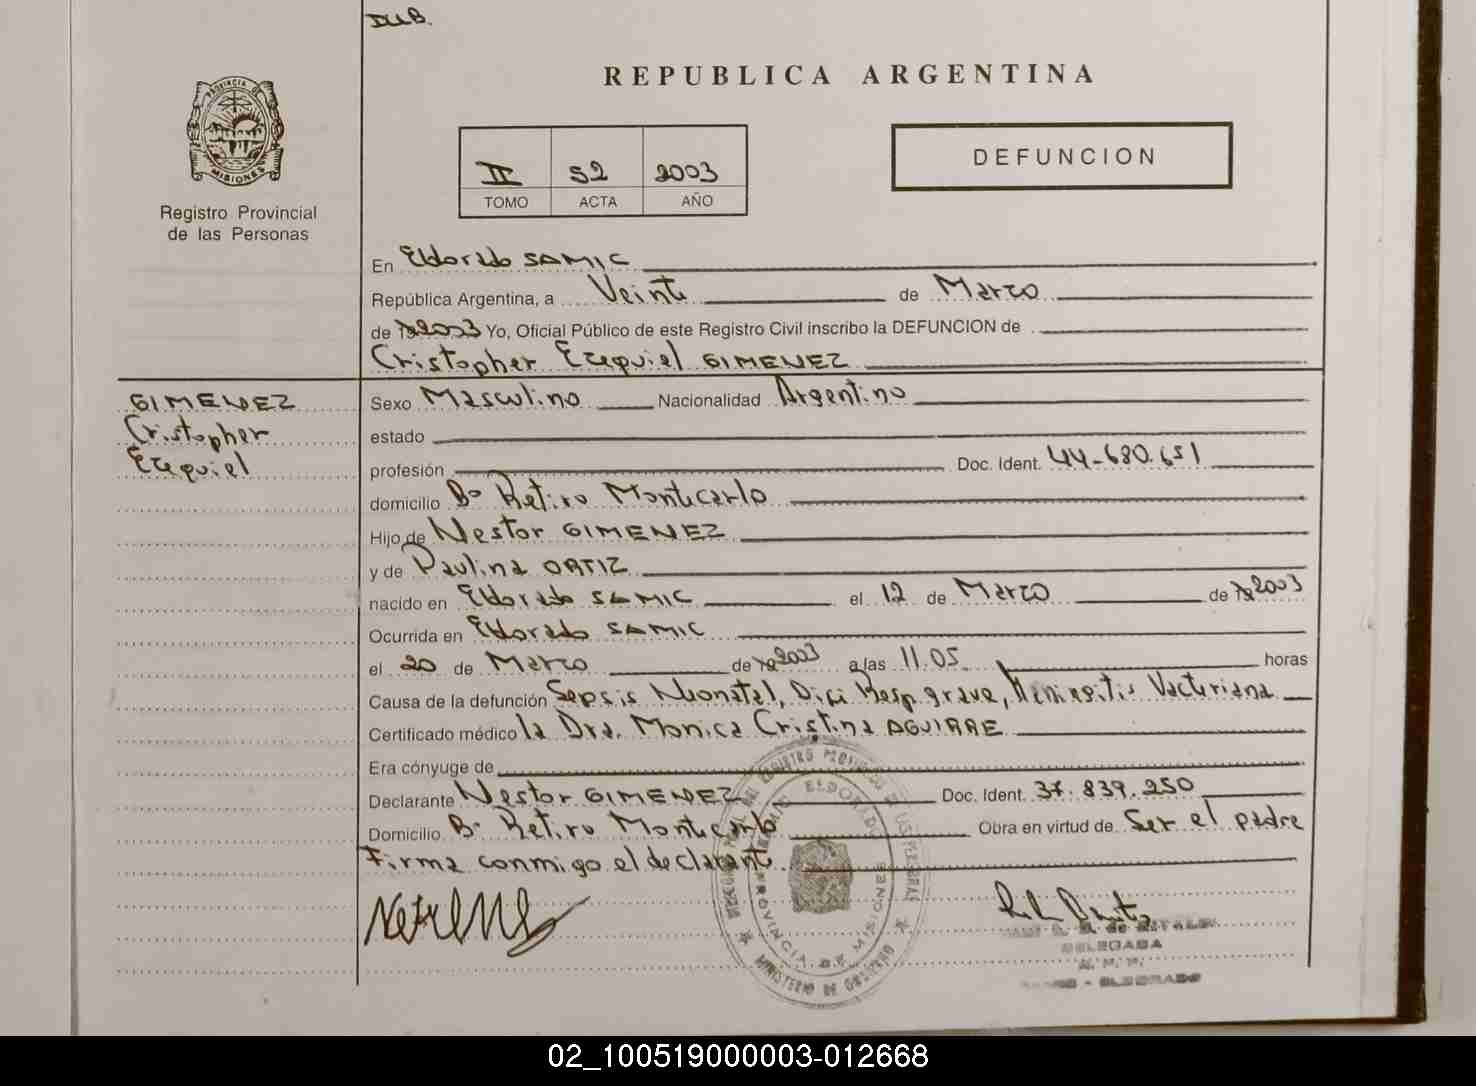 DUB.
REPUBLICA ARGENTINA
PROVINCIA DE
MISIONES
Registro Provincial
de las Personas
II 52 2003
TOMO ACTA AÑO
DEFUNCION
En Eldorado SAMIC
República Argentina, a Veinte de Marzo
de 2003 Yo, Oficial Público de este Registro Civil inscribo la DEFUNCION de
Cristopher Ezequiel GIMENEZ
GIMENEZ
Cristopher
Ezequiel
Sexo Masculino Nacionalidad Argentino
estado
profesión Doc. Ident. 44-680.651
domicilio Bº Retiro Montecarlo
Hijo de Nestor GIMENEZ
y de Paulina ORTIZ
nacido en Eldorado SAMIC el 12 de Marzo de 2003
Ocurrida en Eldorado SAMIC
el 20 de Marzo de 2003 a las 11.05 horas
Causa de la defunción Sepsis Neonatal, Resp grave, Meningitis Vacteriana
Certificado médico la Dra. Monica Cristina AGUIRRE
Era cónyuge de
Declarante Nestor GIMENEZ Doc. Ident. 37.839.250
Domicilio Bº Retiro Montecarlo Obra en virtud de Ser el padre
Firma conmigo el declarante
ELDORADO
PROVINCIA DE MISIONES
MINISTERIO DE GOBIERNO
DELEGADA
ELDORADO
02_100519000003-012668